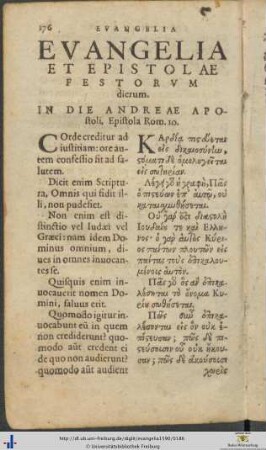 176 EVANGELIA
EVANGELIA
ET EPISTOLAE
FESTORVM
dierum.
IN DIE ANDREAE APO-
stoli, Epistola Rom. 10.
COrde creditur ad
iustitiam: ore au-
tem confessio fit ad sa-
lutem.
Dicit enim Scriptu-
ra, Omnis qui fidit il-
li, non pudefiet.
Non enim est di-
stinctio vel Iudæi vel
Græci: nam idem Do-
minus omnium, di-
ues in omnes inuocan-
tes se.
Quisquis enim in-
uocauerit nomen Do-
mini, saluus erit.
Quomodo igitur in-
uocabunt eũ in quem
non crediderunt? quo-
modo aũt credent ei
de quo non audierunt?
quomodo aũt audient
ΚΑρδίᾳ πιστεύεται
εἰς δικαιοσύνην,
στόματι δὲ ὁμολογεῖται
εἰς σωτηρίαν.
Λέγει γὸ ἡ γραφὴ, Πᾶς
ὁ πιστεύων ἐπ' αὐτῷ, οὐ
καταισχυνθήσεται.
Οὐ γάρ ἐστι διαστολὴ
Ἰουδαίου τε καὶ Ἕλλη-
νος· ὁ γὰρ αὐτὸς Κύρι-
ος πάντων πλουτῶν εἰς
πάντας τοὺς ἐπικαλου-
μένους αὐτόν.
Πᾶς γὸ ὃς ἂν ἐπικα-
λέσηται τὸ ὄνομα Κυ-
ρίου σωθήσεται.
Πῶς οὖν ἐπικα-
λέσονται εἰς ὃν οὐκ ἐ-
πίστευσαν; πῶς δὲ πι-
στεύσουσιν οὗ οὐκ ἤκου-
σαν; πῶς δὲ ἀκούσουσι
χωρὶς
http://dl.ub.uni-freiburg.de/diglit/evangelia1590/0186
© Universitätsbibliothek Freiburg